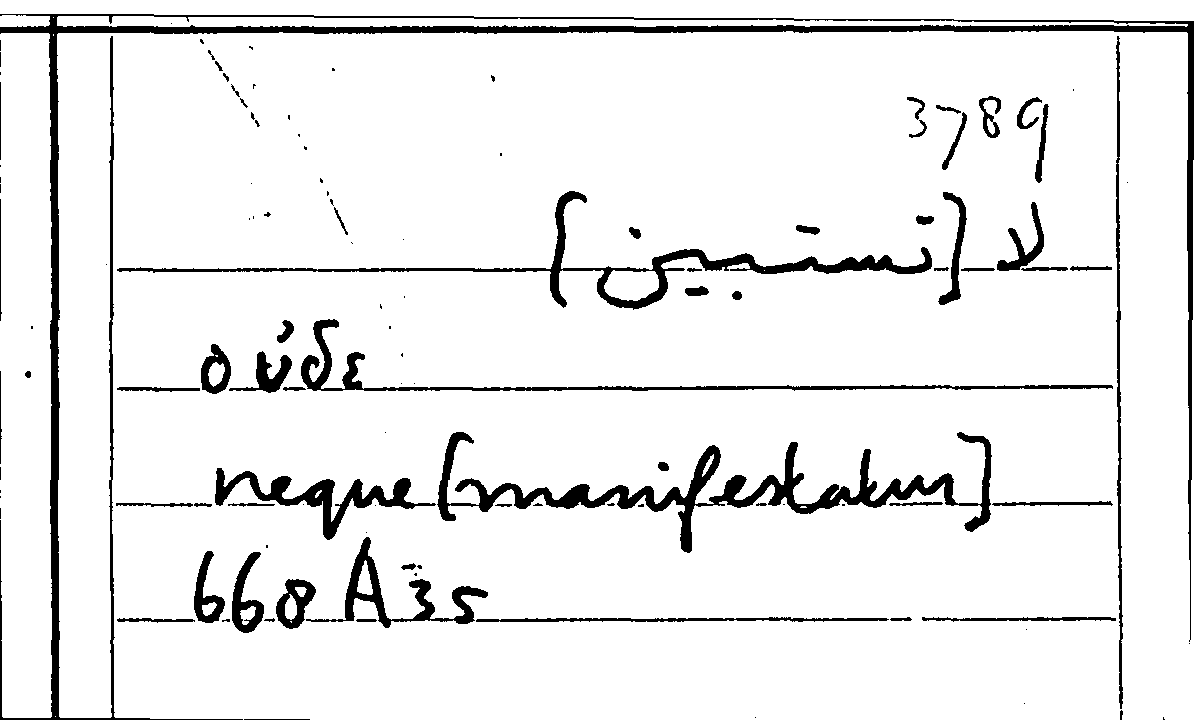 3789
لا [تستبين]
οὐδε
neque [manifestatur]
668 A 35